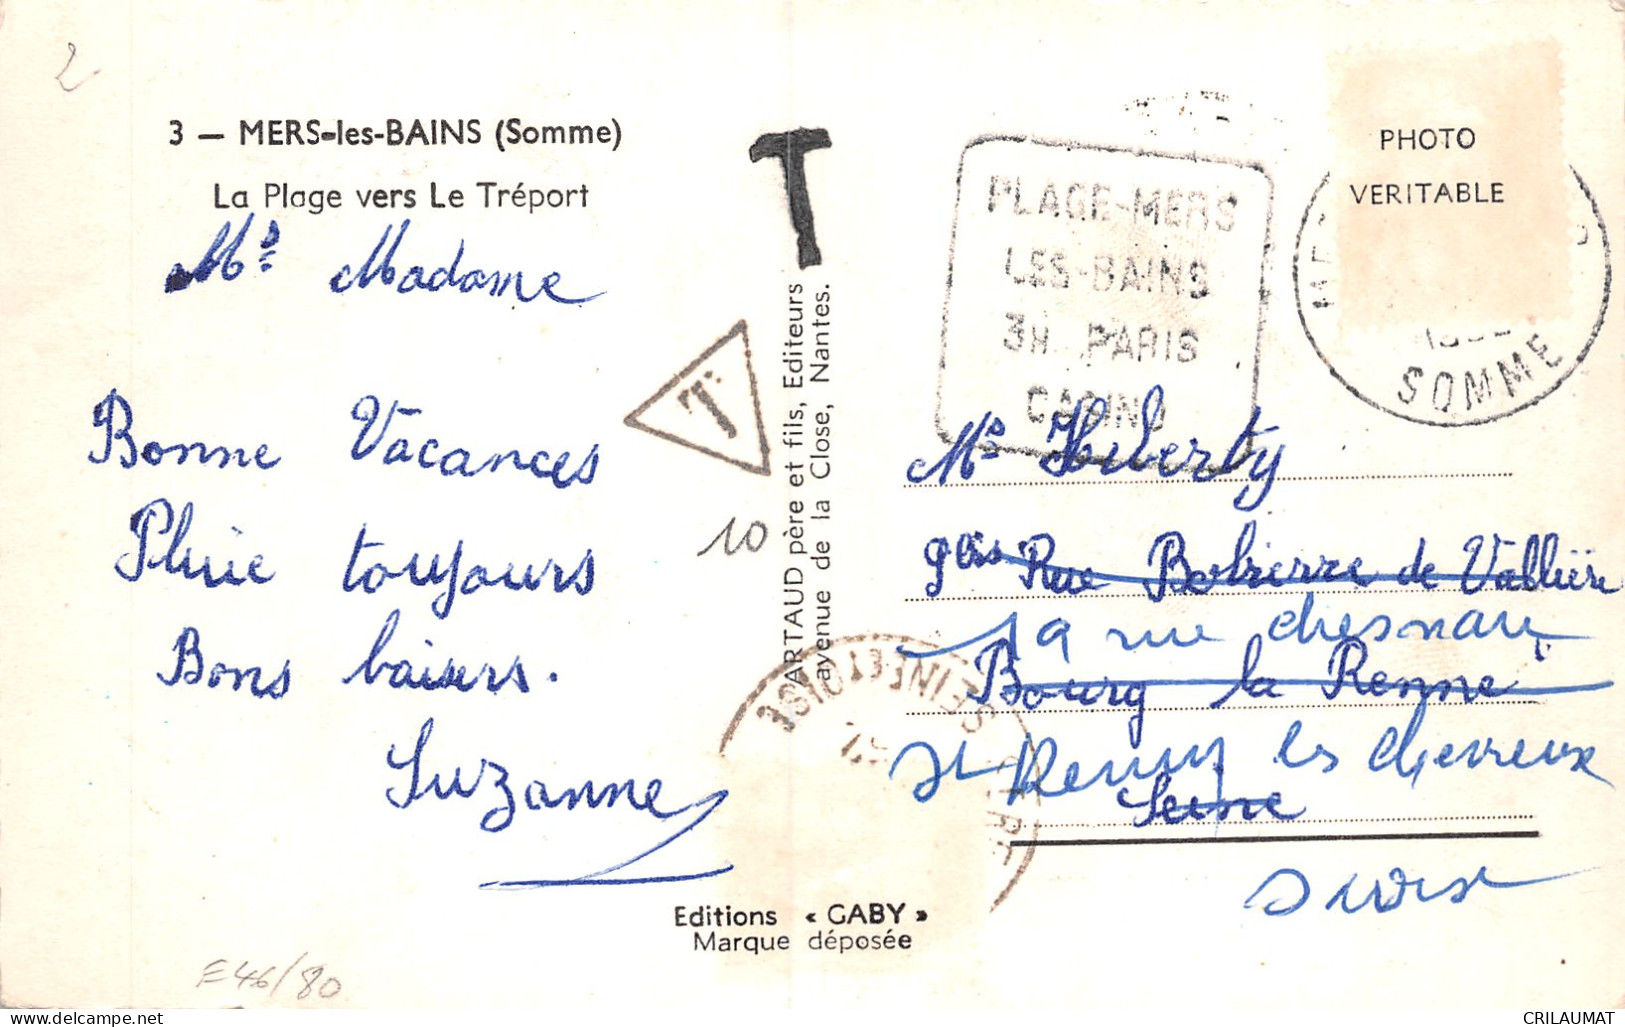 2
3 — MERS-les-BAINS (Somme)
La Plage vers Le Tréport
Ms Madame
Bonne Vacances
Pluie toujours
Bons baisers.
Suzanne
T
T
10
ARTAUD père et fils, Editeurs
avenue de la Close, Nantes.
PLAGE-MERS
LES-BAINS
3H PARIS
CASINO
PHOTO
VERITABLE
SOMME
Ms Huberty
9 bis Rue de
19 rue
Bourg la Renne
St Remy les chevreux
Seine
SEINE ET OISE
Editions « GABY »
Marque déposée
E46/80
CRILAUMAT